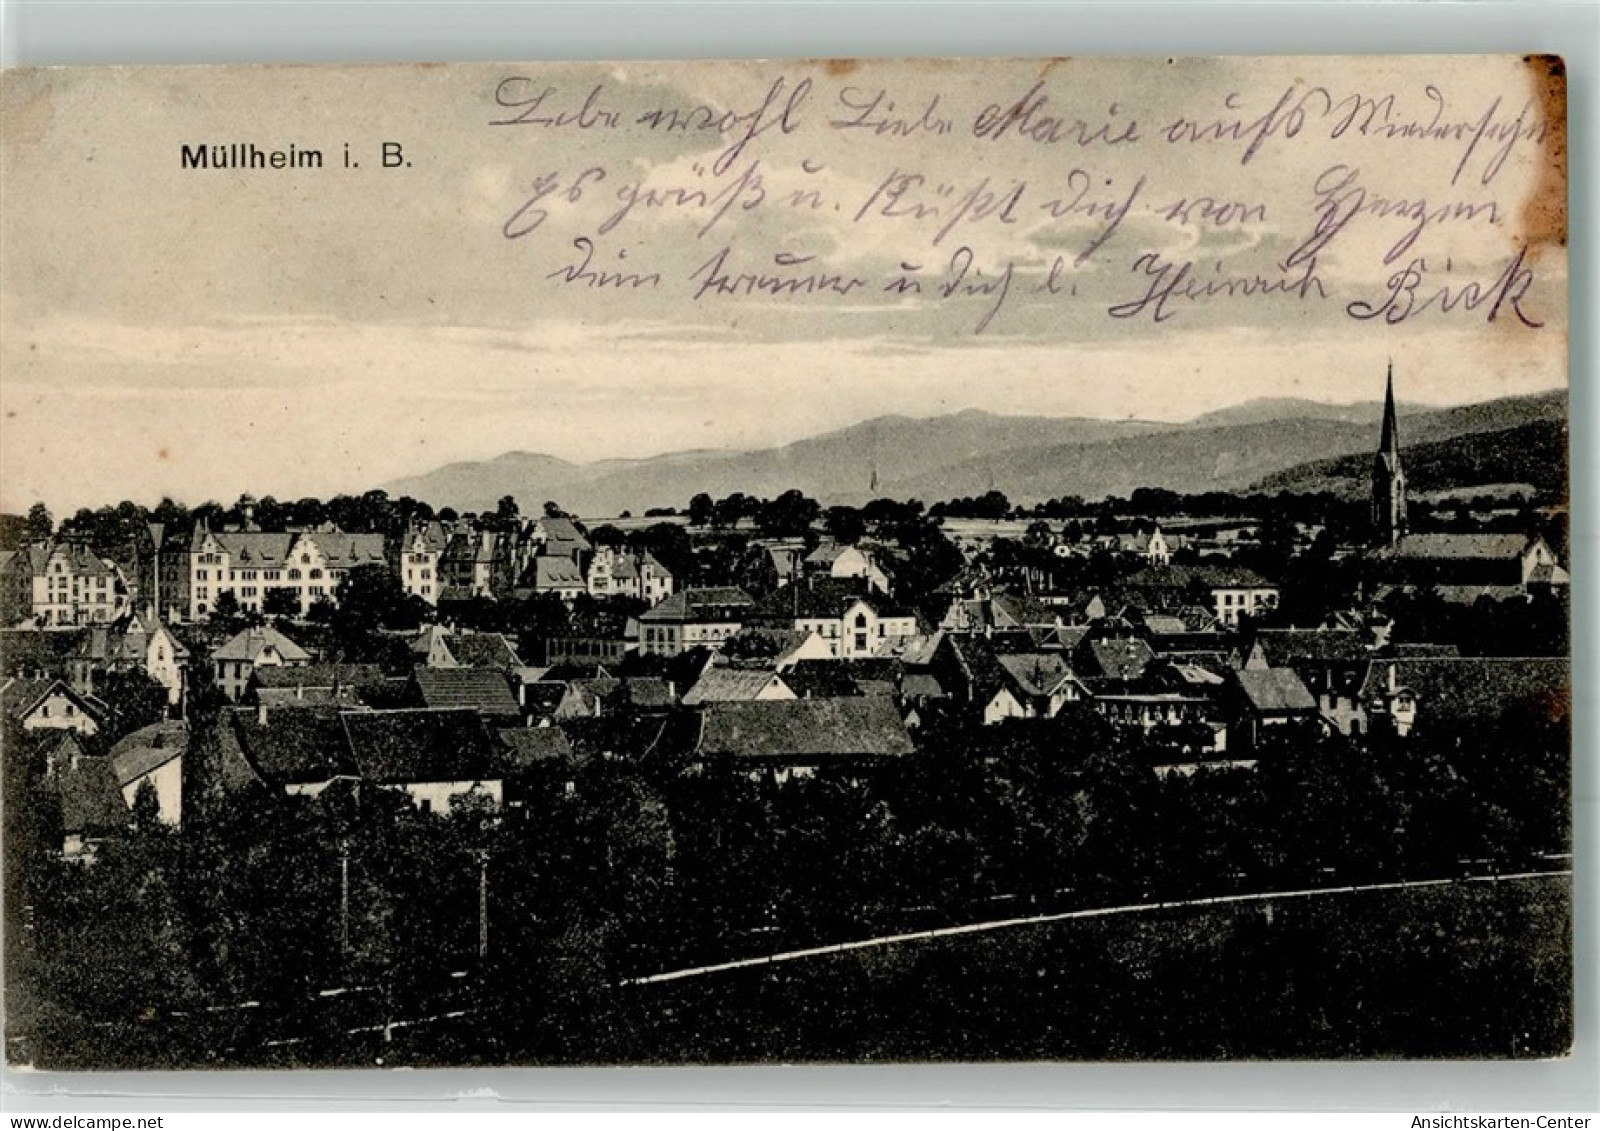 Müllheim i. B.
Lebe wohl Liebe Marie aufs Wiedersehn
Es grüßt u. Küßt dich von Herzen
dein treuer u dich l. Heinrich Bick
Ansichtskarten-Center